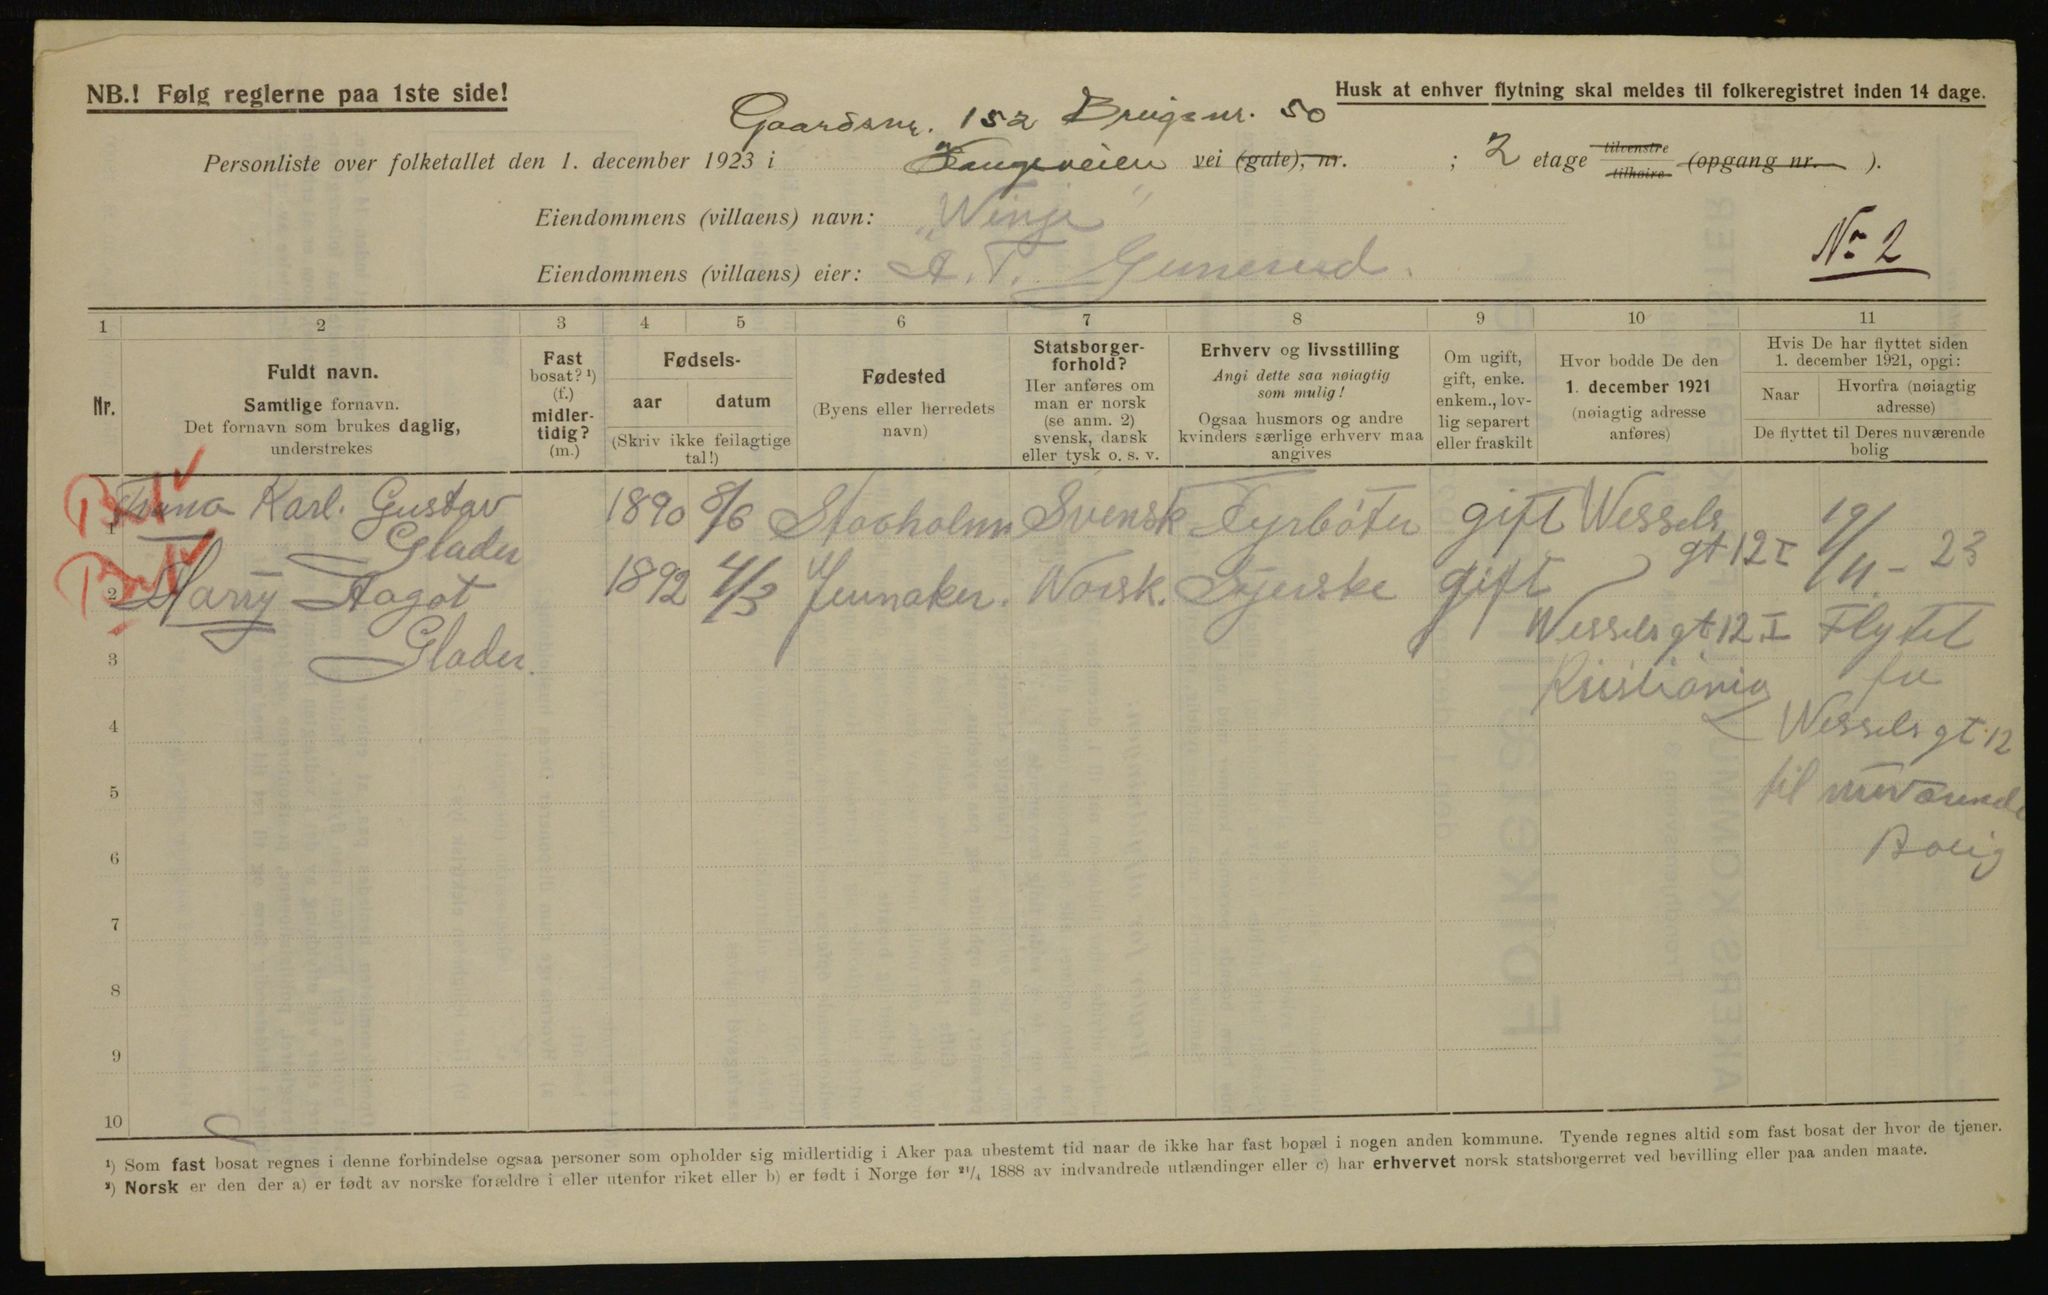 NB.! Følg reglerne paa 1ste side!
Husk at enhver flytning skal meldes til folkeregistret inden 14 dage.
Gaardsnr. 152 Brugsnr. 50
Personliste over folketallet den 1. december 1923 i vei (gate), nr. ; 2 etage tilvenstre tilhøire (opgang nr. ).
Eiendommens (villaens) navn: "Winje"
Eiendommens (villaens) eier: A. T.
No 2
1 2 3 4 5 6 7 8 9 10 11
Nr.
Fuldt navn.
Samtlige fornavn.
Det fornavn som brukes daglig,
understrekes
Fast
bosat? ¹)
(f.)
midler-
tidig?
(m.)
Fødsels-
aar datum
(Skriv ikke feilagtige
tal!)
Fødested
(Byens eller herredets
navn)
Statsborger-
forhold?
Her anføres om
man er norsk
(se anm. 2)
svensk, dansk
eller tysk o. s. v.
Erhverv og livsstilling
Angi dette saa nøiagtig
som mulig!
Ogsaa husmors og andre
kvinders særlige erhverv maa
angives
Om ugift,
gift, enke.
enkem., lov-
lig separert
eller fraskilt
Hvor bodde De den
1. december 1921
(nøiagtig adresse
anføres)
Hvis De har flyttet siden
1. december 1921, opgi:
Naar Hvorfra (nøiagtig
adresse)
De flyttet til Deres nuværende
bolig
1 Karl. Gustav 1890 8/6 Stocholm Svensk Fyrbøter gift Wessels
Glader gt 12 I 19/11 - 23
2 Harry Aagot 1892 4/3 Jevnaker. Norsk. Syerske gift
Glader. Wesselsgt 12 I Flytet
3 Kristiania fra
4 Wesselsgt 12
5 til nuværende
6 Bolig
7
8
9
10
¹) Som fast bosat regnes i denne forbindelse ogsaa personer som opholder sig midlertidig i Aker paa ubestemt tid naar de ikke har fast bopæl i nogen anden kommune. Tyende regnes altid som fast bosat der hvor de tjener.
²) Norsk er den der a) er født av norske forældre i eller utenfor riket eller b) er født i Norge før ²¹/₄ 1888 av indvandrede utlændinger eller c) har erhvervet norsk statsborgerret ved bevilling eller paa anden maate.